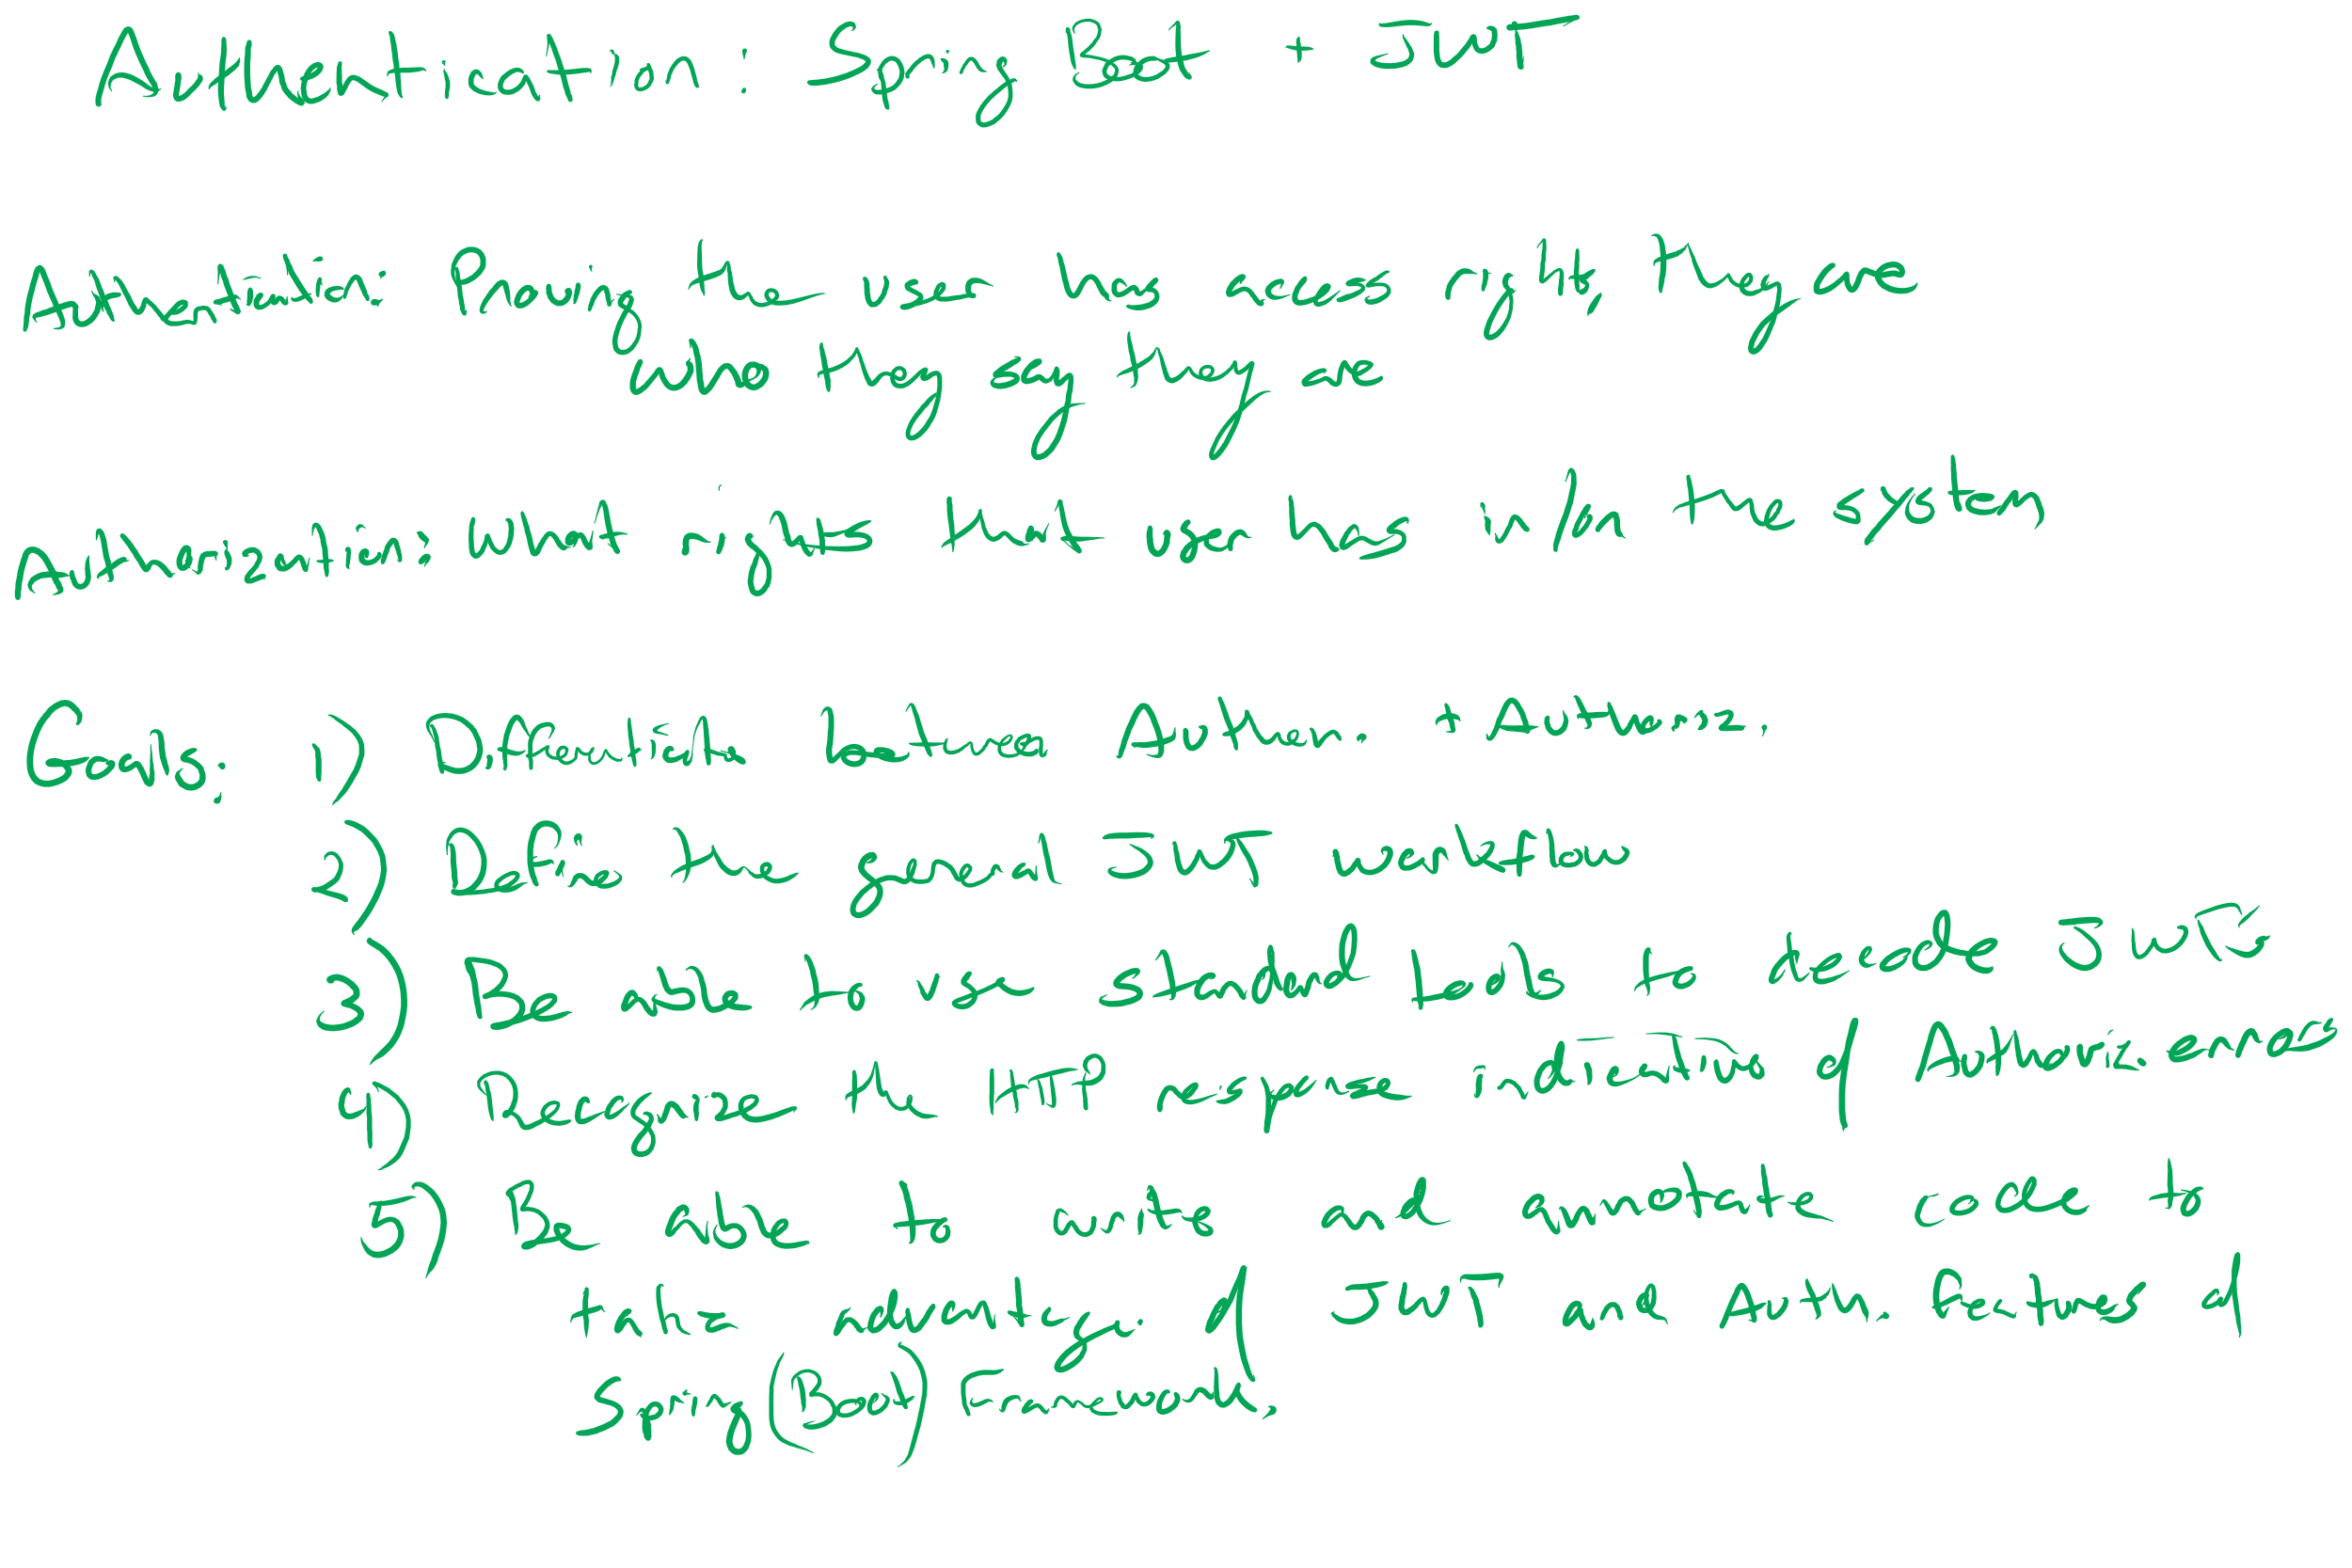 Authentication: Spring Boot + JWT
Authentication: Proving the user has access right, they are
who they say they are
Authorization: What rights that user has in/on the system
Goals: 1) Differentiate between Authen. + Authoriz.
2) Define the general JWT workflow
3) Be able to use standard tools to decode JWTs
4) Recognize the HTTP response indicating of Authoriz. errors
5) Be able to write and annotate code to
take advantage of JWT and Auth. features of
Spring (Boot) Framework.